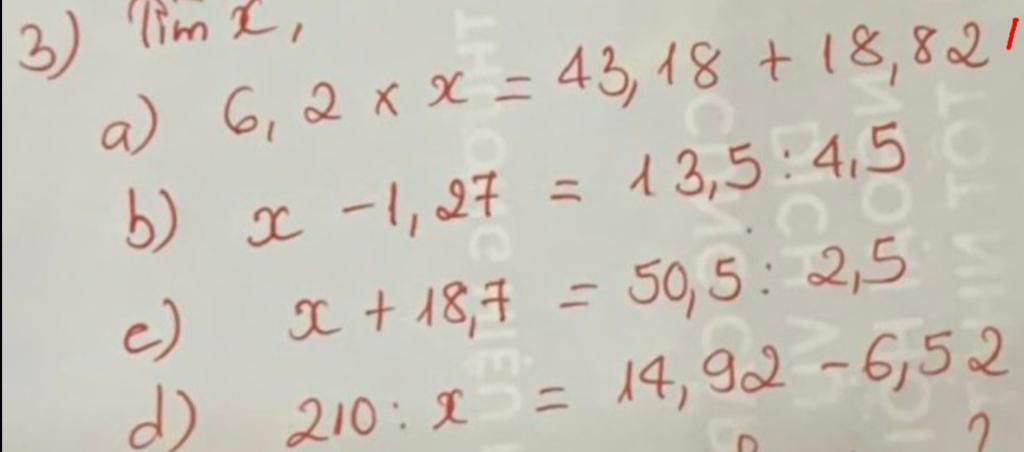 3) Tìm x,
a) 6,2 × x = 43,18 + 18,82
b) x - 1,27 = 13,5 : 4,5
c) x + 18,7 = 50,5 : 2,5
d) 210 : x = 14,92 - 6,52